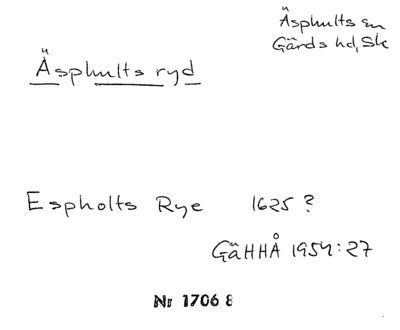 Äsphults sn
Gärds hd, Sk
Äsphults ryd
Espholts Rye 1625?
GäHHÅ 1954:27
Nr 1706 8